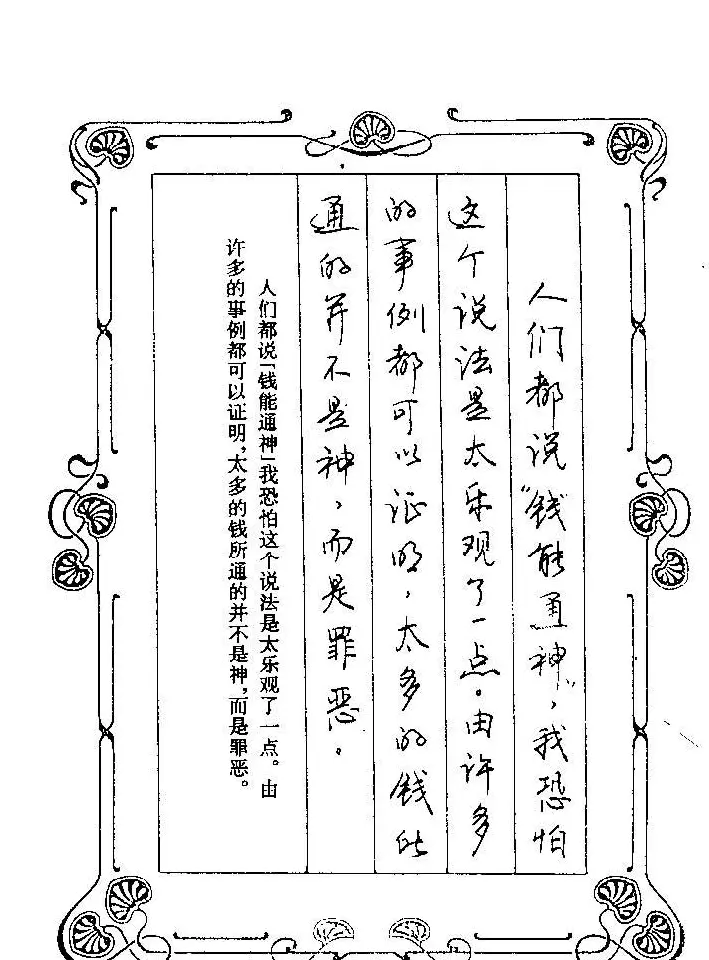 人们都说“钱能通神”，我恐怕
这个说法是太乐观了一点。由许多
的事例都可以证明，太多的钱所
通的并不是神，而是罪恶。
人们都说「钱能通神」我恐怕这个说法是太乐观了一点。由
许多的事例都可以证明，太多的钱所通的并不是神，而是罪恶。